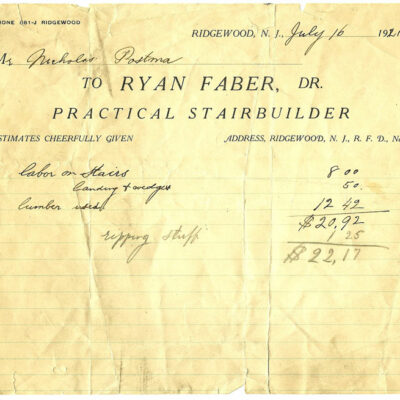 HONE 081-J RIDGEWOOD
RIDGEWOOD, N. J., July 16 1921
Mr Nicholas Postma
TO RYAN FABER, DR.
PRACTICAL STAIRBUILDER
ESTIMATES CHEERFULLY GIVEN ADDRESS, RIDGEWOOD, N. J., R. F. D., No
Labor on Stairs 8 00
Landing & wedges 50.
Lumber used 12 42
$20,92
ripping stuff 1 25
$22,17